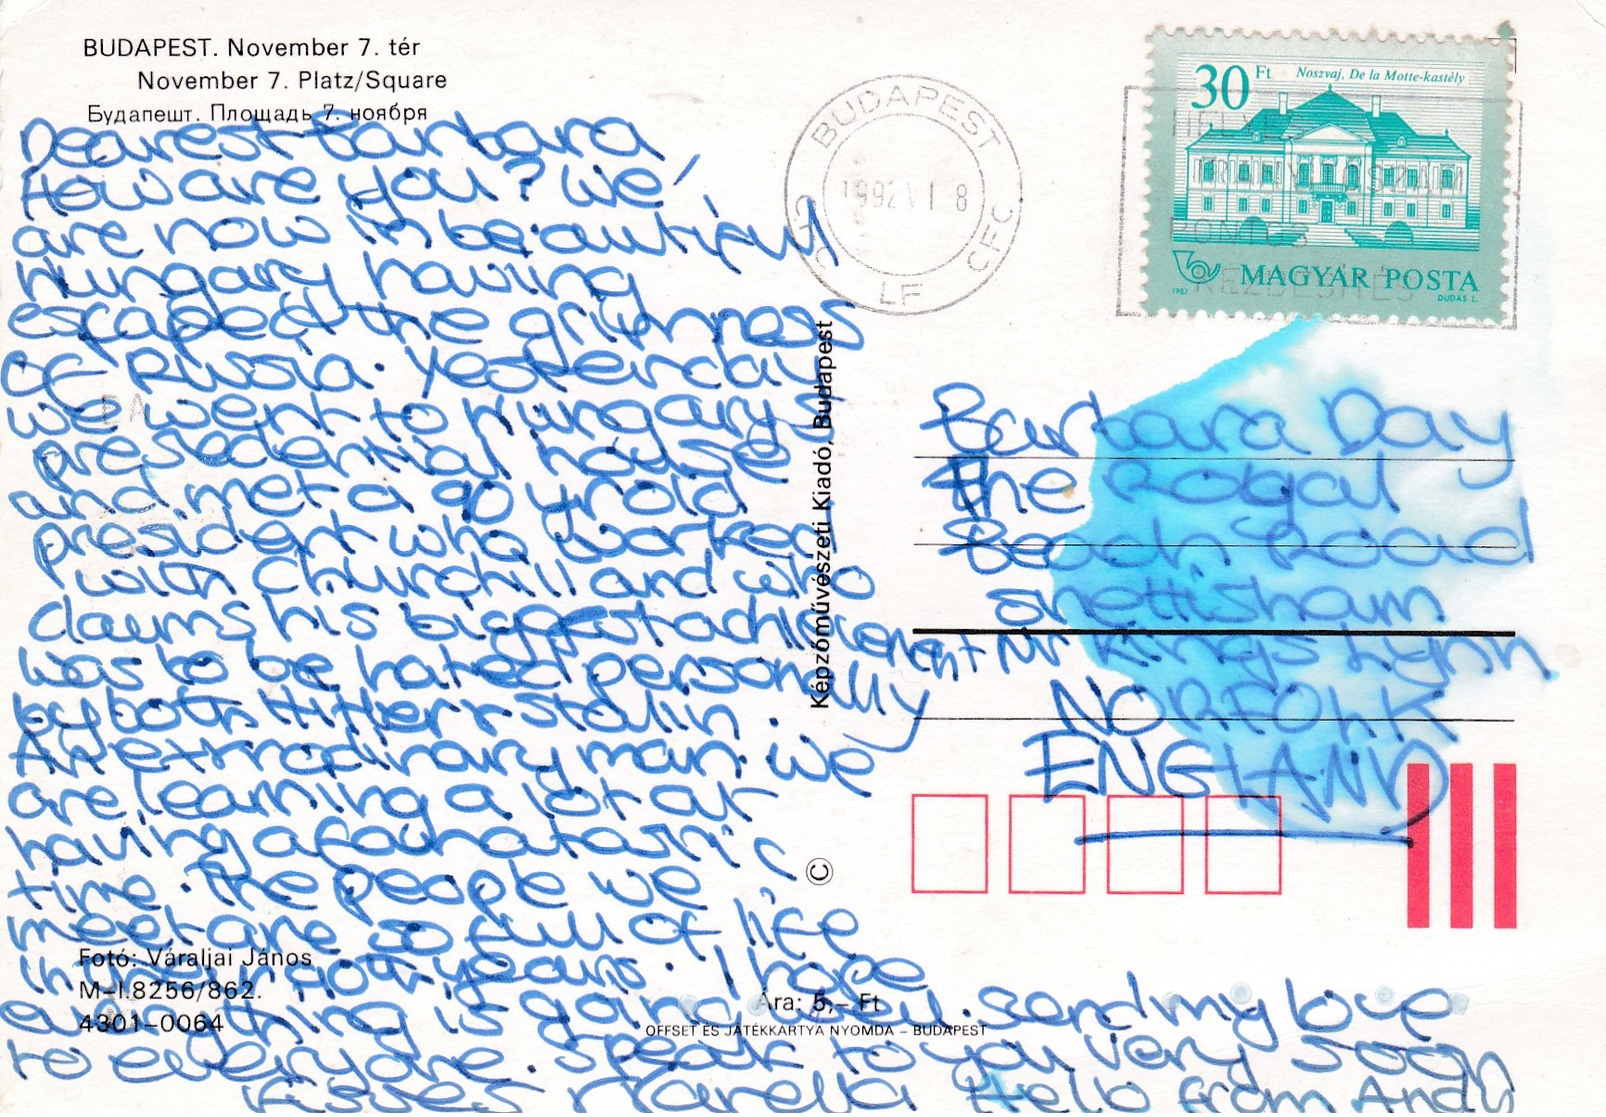 BUDAPEST. November 7. tér
November 7. Platz/Square
Будапешт. Площадь 7. ноября
Dearest Barbara
How are you? We
are now in beautiful
Hungary having
escaped the grimness
of Russia. Yesterday
we went to Hungary's
presedential house
and met a 90 yr old
president who worked
with Churchill and who
claims his biggest achievement
was to be hated personally
by both Hitler + Stalin.
An extrodinary man. We
are learning a lot at
having a fantastic
time. The people we
meet are so full of life
in their 80th years. I hope
everything is going well. Send my love
to everyone. Speak to you very soon
Kisses Marella Hello from Andy
Fotó: Váraljai János
M–I.8256/862.
4301–0064
Ára: 5,– Ft
OFFSET ÉS JÁTÉKKARTYA NYOMDA – BUDAPEST
Képzőművészeti Kiadó, Budapest
©
BUDAPEST
1992 VI 8
LF
30 Ft
Noszvaj, De la Motte-kastély
MAGYAR POSTA
1987
DUDÁS L.
HELYES
PONTOS
KÉZBESÍTÉS
Barbara Day
The
Beach Road
Snettisham
Nr Kings Lynn
NORFOLK
ENGLAND